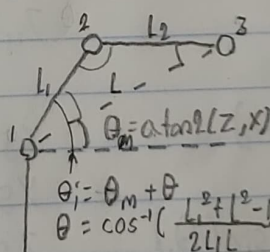 2 L₂ 3
L₁ L
1 θₘ=atan2(Z,X)
θ₁=θₘ+θ
θ=cos⁻¹(L₁²+L²-
2L₁L